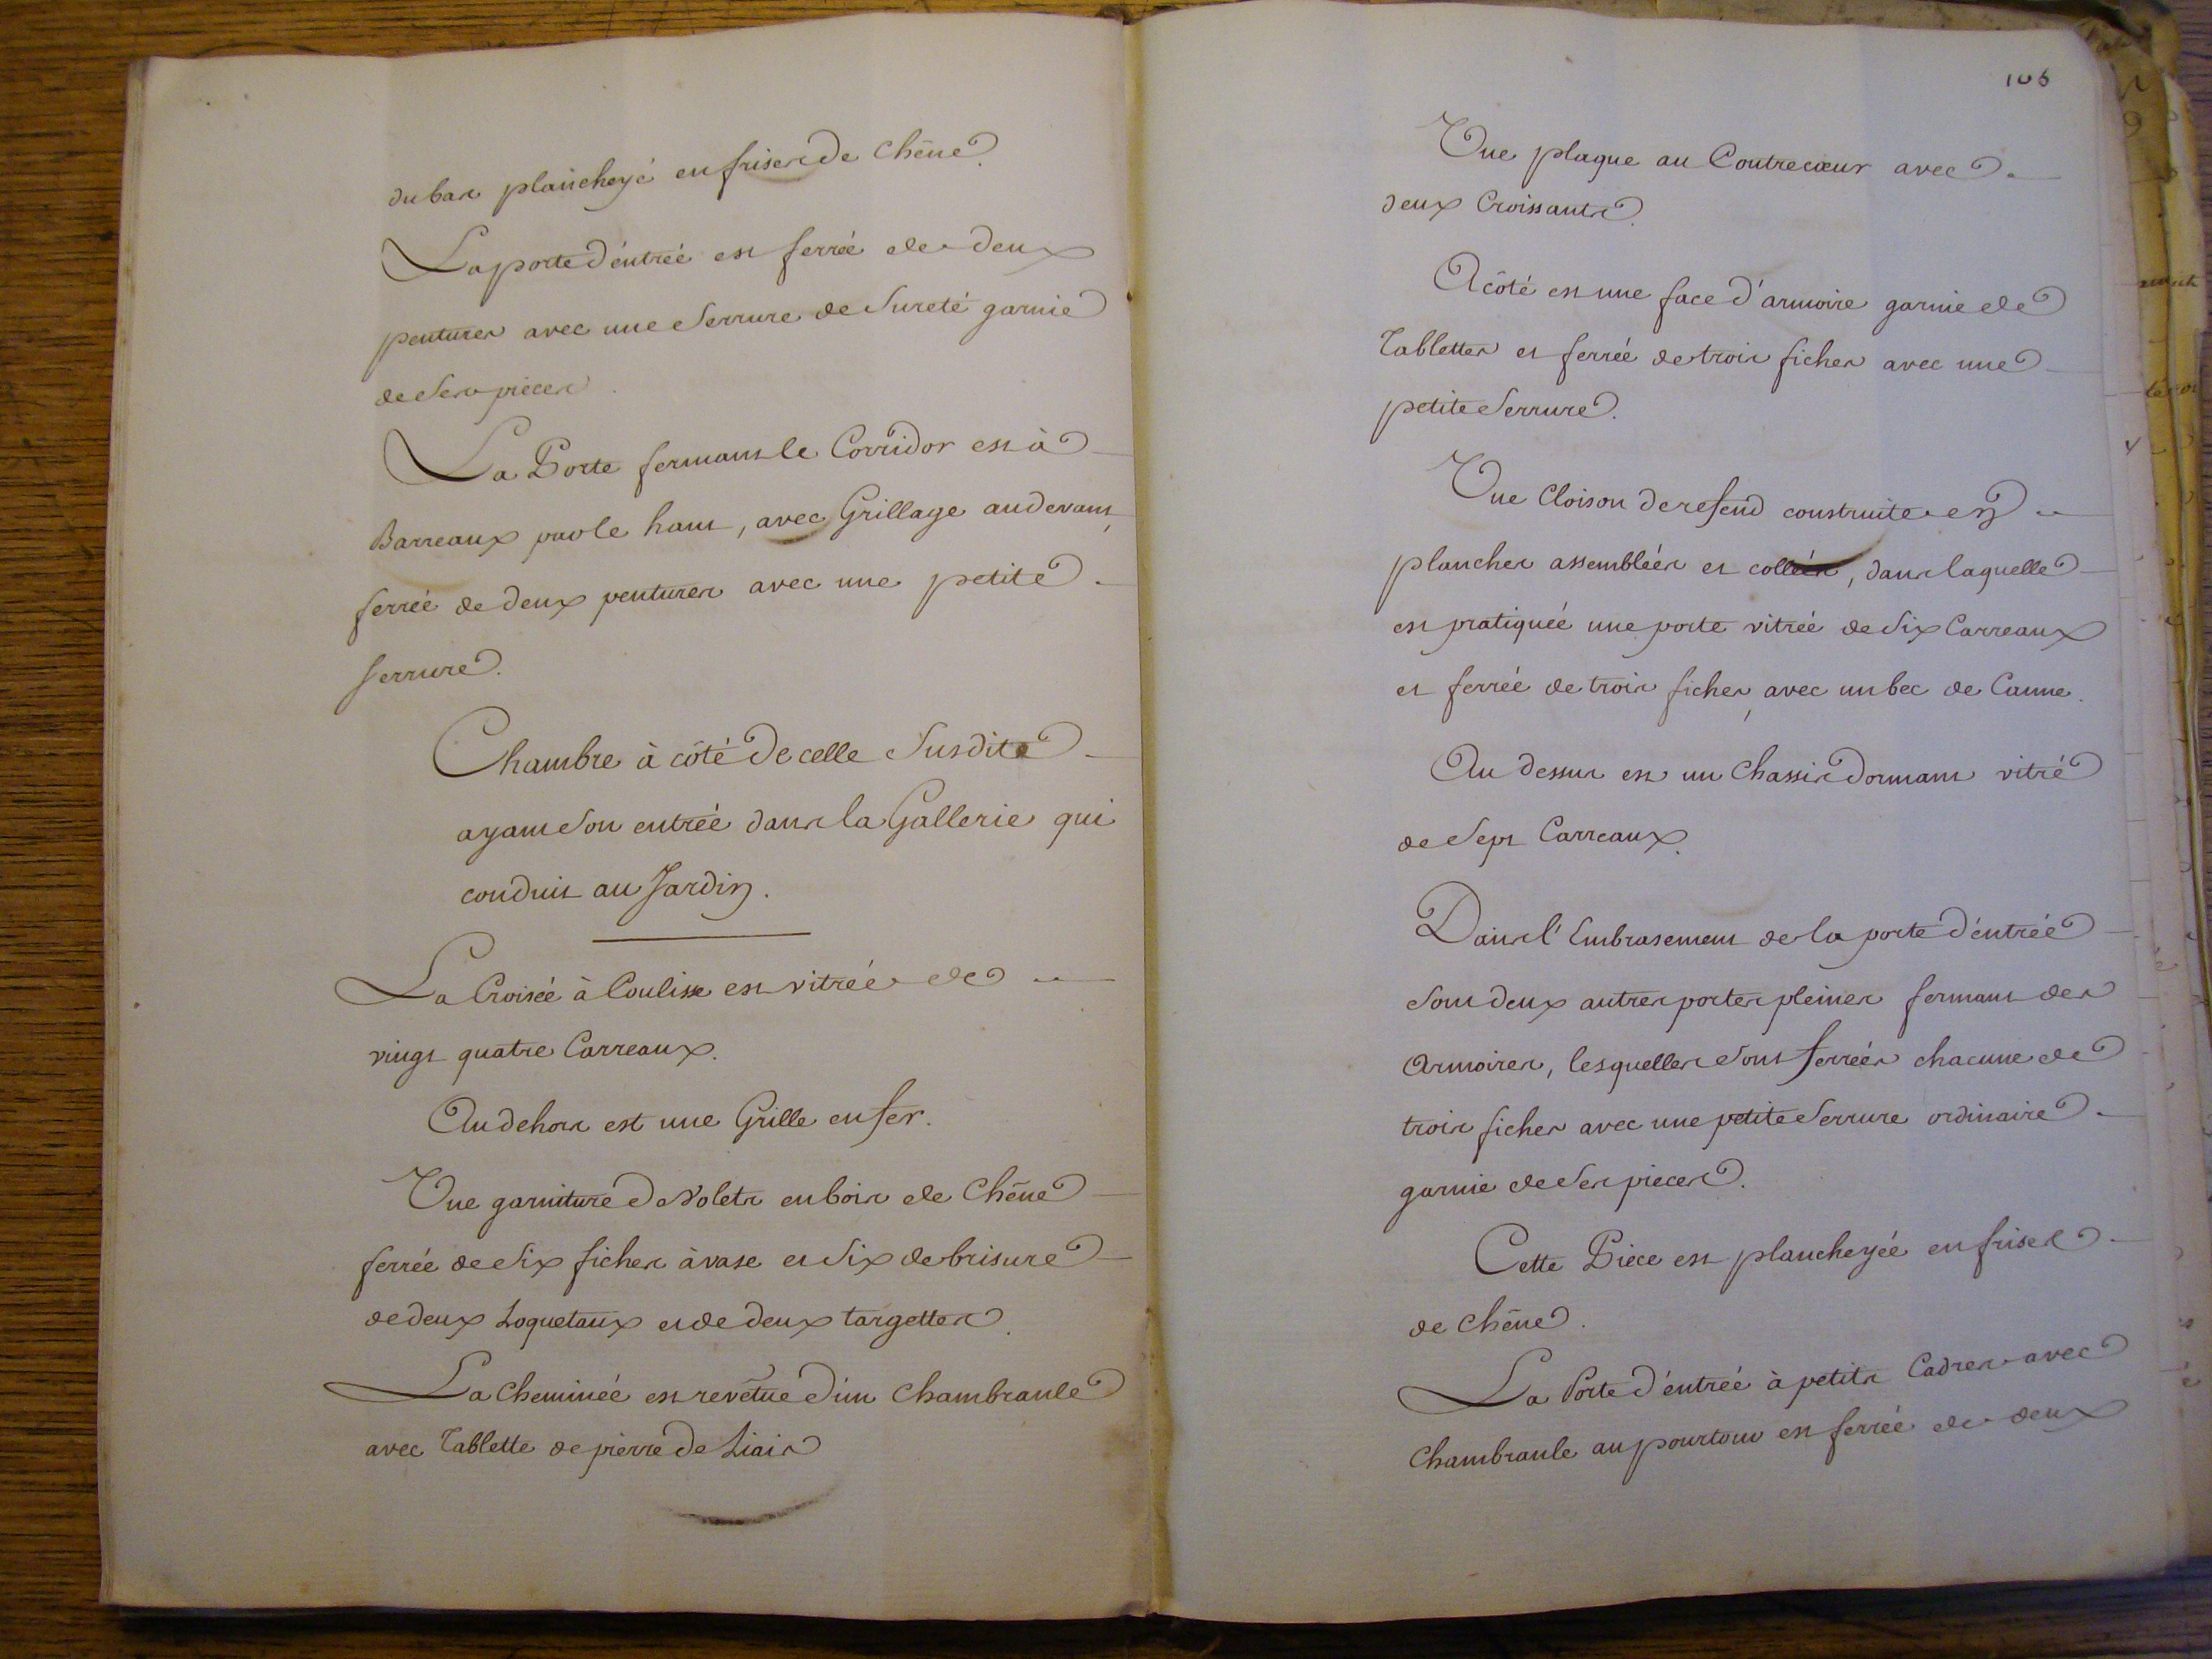 du bas plancheyé en frises de Chêne.
La porte d'éntreé est ferreé de deux
pentures avec une Serrure de Sureté garnie
de Ses pieces.
La Porte fermant le Corridor est à
Barreaux par le haut, avec Grillage audevant,
ferreé de deux pentures avec une petite
serrure.
Chambre à côté de celle Susdite
ayant Son entreé dans la Gallerie qui
conduit au Jardin.
La Croiseé à Coulisse est vitreé de
vingt quatre Carreaux.
Au dehors est une Grille en fer.
Une garniture de Volets en bois de Chêne
ferreé de Six fiches à vase et Six de brisure
de deux Loquetaux et de deux targettes.
La Chemineé est revêtue d'un Chambranle
avec Tablette de pierre de Liais
106
Une plaque au Contrecœur avec
deux Croissants.
A côté est une face d'armoire garnie de
Tablettes et ferreé de trois fiches avec une
petite Serrure.
Une Cloison de refend construite en
planches assembleés et colleés, dans laquelle
est pratiqueé une porte vitreé de Six Carreaux
et ferreé de trois fiches, avec un bec de Canne.
Au dessus est un Chassis Dormant vitré
de Sept Carreaux.
Dans l'Embrasement de la porte d'éntreé
Sont deux autres portes pleines fermant des
Armoires, lesquelles Sont ferreés chacune de
trois fiches avec une petite Serrure ordinaire
garnie de Ses pieces.
Cette Piece est plancheyeé en frises
de Chêne.
La Porte d'éntreé à petits Cadres avec
Chambranle au pourtour est ferreé de deux